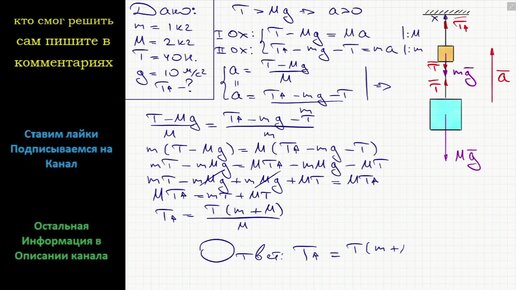 кто смог решить
сам пишите в
комментариях
Ставим лайки
Подписываемся на
Канал
Остальная
Информация в
Описании канала
Дано:
m = 1 кг
M = 2 кг
T = 40 Н.
g = 10 м/с²
T_A - ?
T > Mg ⇒ a > 0
I ox: { T - Mg = Ma |:M
II ox: { T_A - mg - T = ma |:m
{ a = (T - Mg)/M
||
{ a = (T_A - mg - T)/m | ⇒
(T - Mg)/M = (T_A - mg - T)/m
m(T - Mg) = M(T_A - mg - T)
mT - mMg = MT_A - mMg - MT
mT - mMg + mMg + MT = MT_A
MT_A = mT + MT
T_A = T(m + M)/M
Ответ: T_A = T(m +
x
T_A
M
T
T
m
mg
a
Mg